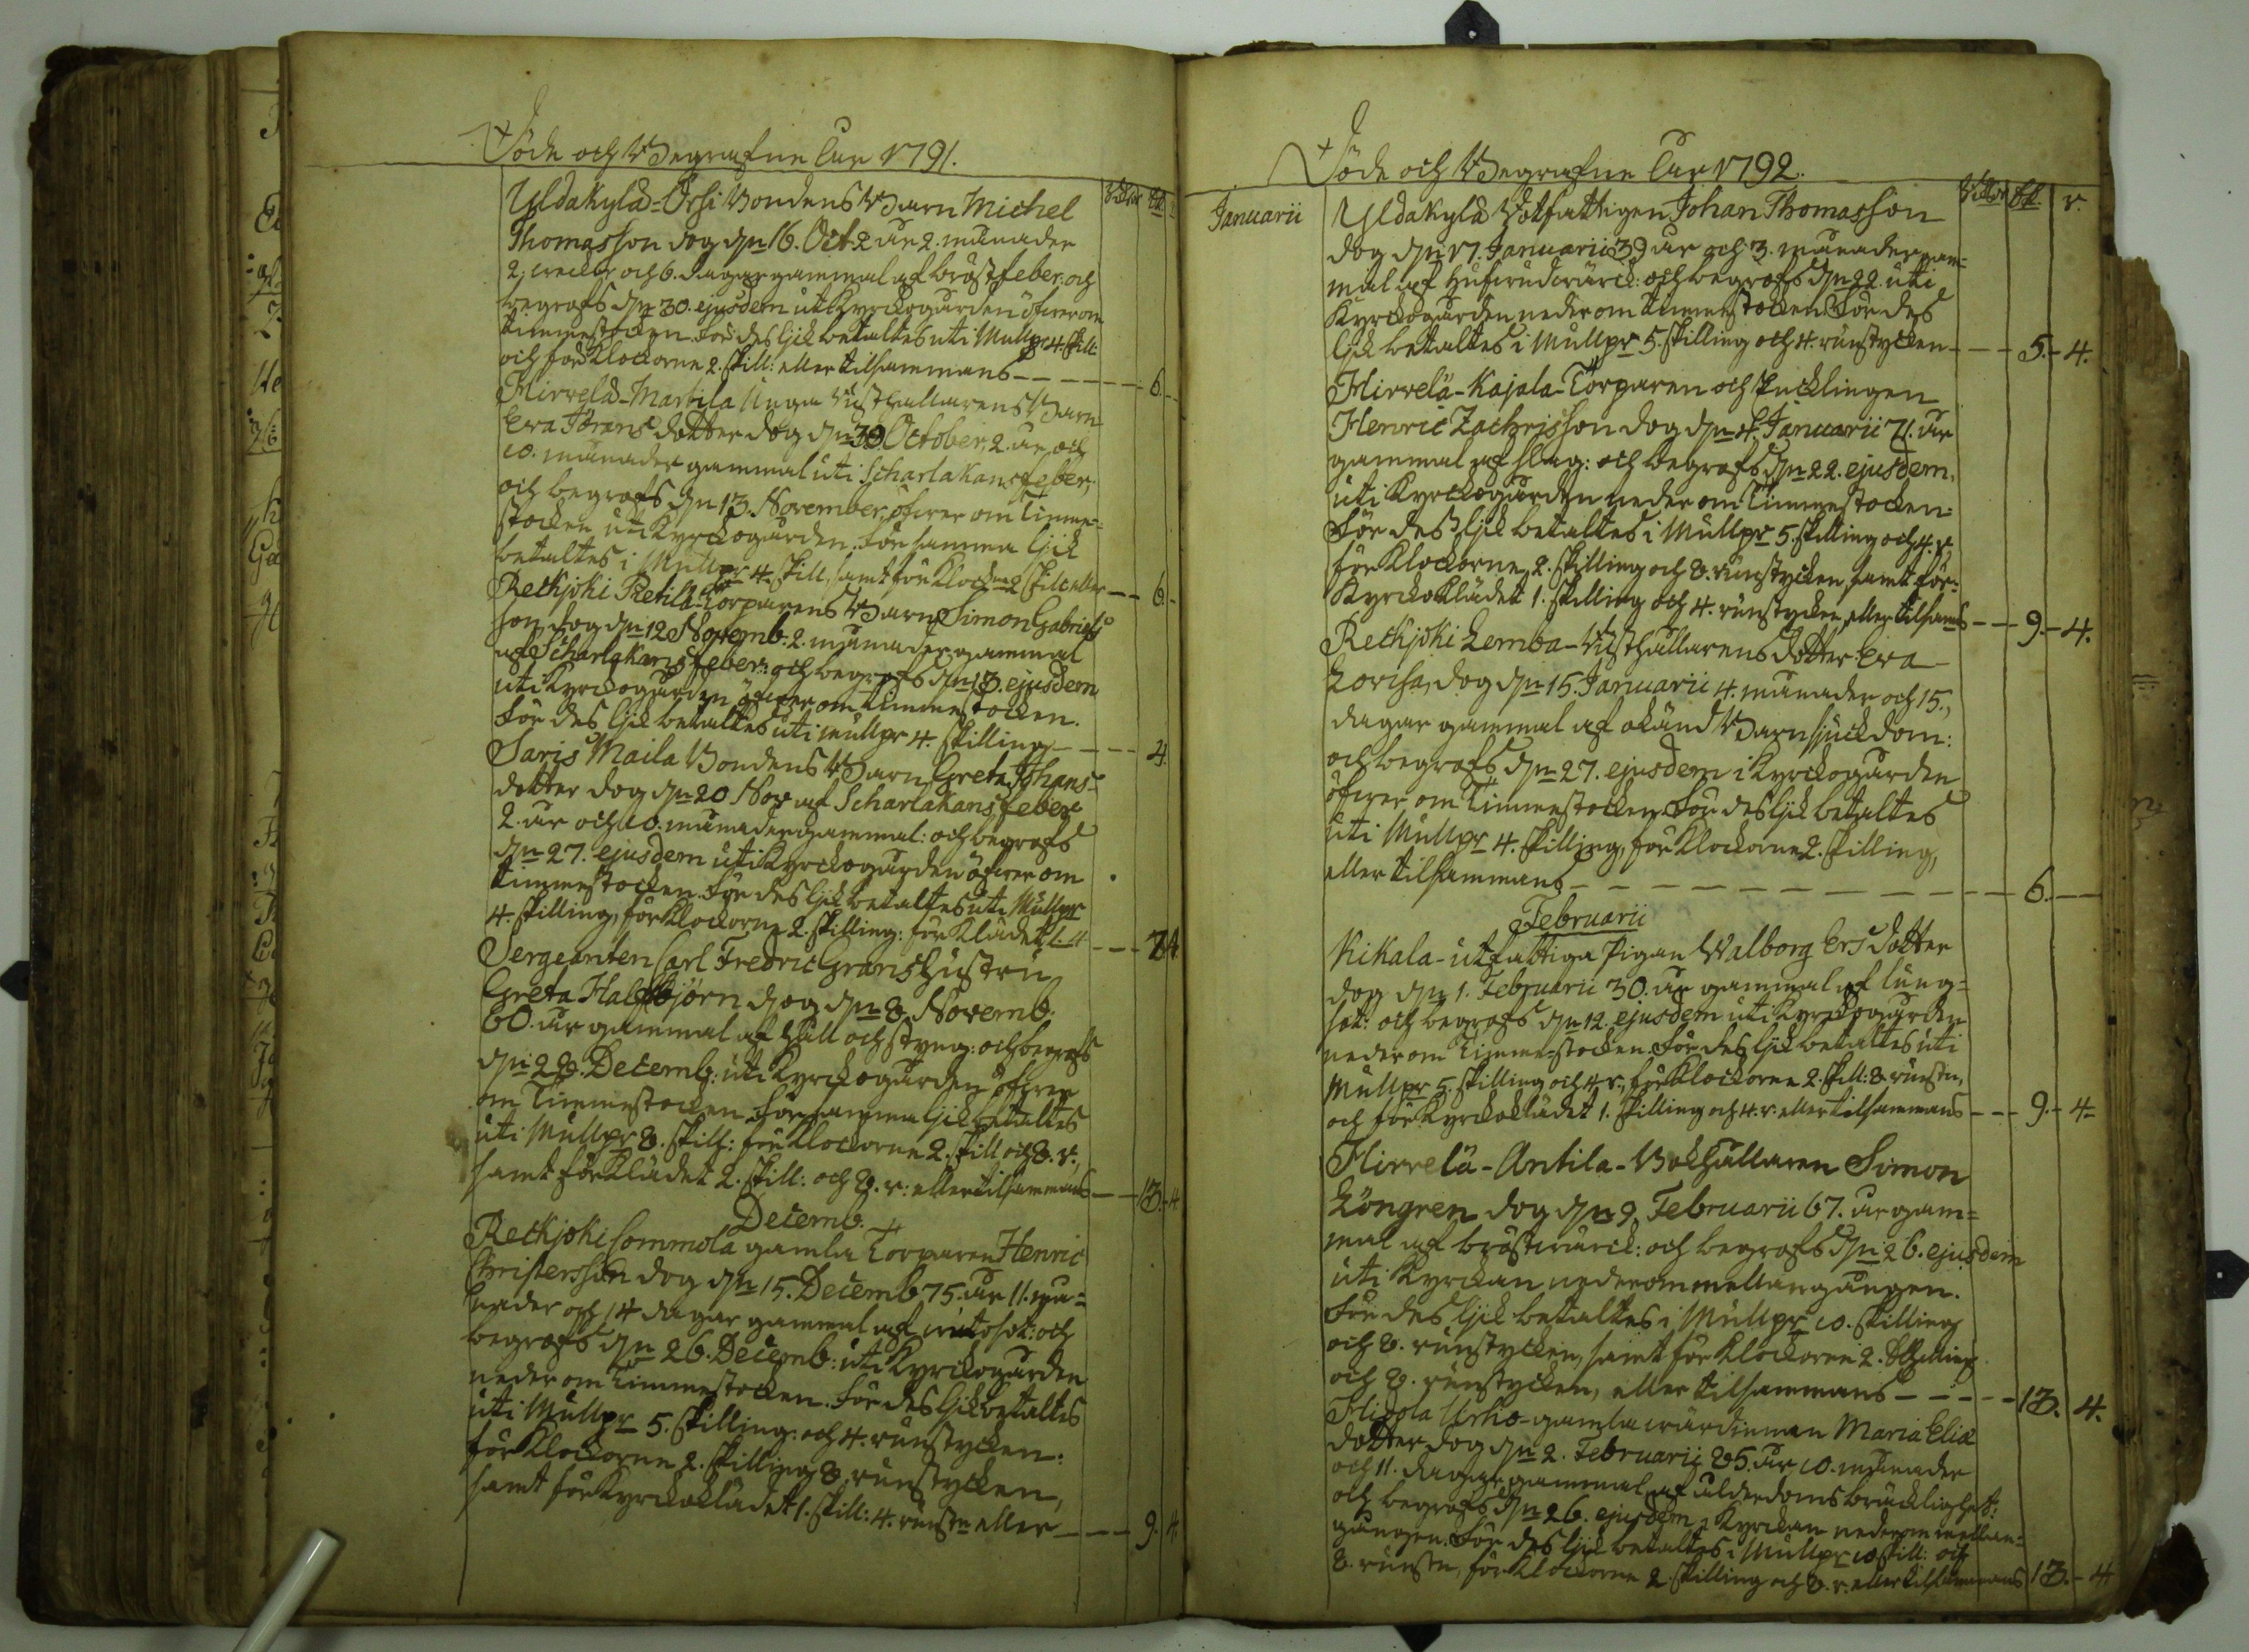 Döde och Begrafne Åur 1791.
Riksdr sk.
Yldakylä-Orsi Bondens Barn Michel
Thomasson dog d. 16. Oct. 2 år 2. månader
2, weckor och 6. dagar gammal af bröstfeber: och
begrofs dn 30. ejusdem uti Kyrckogården öfwer om
timmerstocken. För des lijk betaltes uti Mullpr 4. skill:
och för Klockorne 2. skill: eller tilsammans - - - - - 6. -
Hirvelä-Martila Unga Rusthållarens Barn
Eva Jörans dotter dog dn 30 October, 2. år och
10. månader gammal uti Scharlakansfeber,
och begrofs dn 13. November öfwer om Timmer=
stocken uti Kyrckogården. För samma lijk
betaltes i Mullpr 4. skill, samt för Klockorne 2 skill eller - - 6. -
Retkjoki Torparens Barn Simon Gabriels
son dog dn 12 Novemb. 2. månader gammal
af Scharlakansfeber: och begrofs dn 13. ejusdem
uti Kyrckogården öfwer om timmerstocken.
För des lijk betaltes uti mullpr 4. skilling - - - - 4.
Saris Maila Bondens Barn Greta Johans=
dotter dog dn 20 Nov af Scharlakansfeber
2. år och 10. månader gammal: och begrofs
dn 27. ejusdem uti Kyrckogården öfwer om
timmerstocken. För des lijk betaltes uti Mullpr
4. skilling, för Klockorne 2. skilling: för Klädet 1. 4 - - - 7. 4.
Sergeanten Carl Fredric Grans Hustru
Greta Halfbjörn dog dn 8. Novemb.
60. år gammal af håll och styng: och begrofs
dn 28. Decemb: uti Kyrckogården öfwer
om Timmerstocken. För samma lijk betaltes
uti Mullpr 8. skill: för Klockorne 2. skill och 8. r.,
samt för Klädet 2. skill: och 8. r: eller tilsammans - - 13. - 4
Decemb.
Retkjoki Sommola gamla Torparen Henric
Christersson dog dn 15. Decemb 75. år 11. må=
nader och 14 dagar gammal af : och
begrofs dn 26. Decemb: uti Kyrckogården
neder om Timmerstocken. För des lijk betaltes
uti Mullpr 5. skilling: och 4. runstycken:
för Klockorne 2. skilling 8. runstycken,
samt för Kyrckoklädet 1. skill: 4. runstn eller - - - 9. 4.
Döde och Begrafne Åur 1792.
Riksdr sk. r.
Januarii
Yldakylä Rotfattigen Johan Thomasson
dog dn 17. Januarii 39 år och 3. månader gam=
mal af hufwudwärck: och begrofs dn 22. uti
Kyrckogården neder om timmerstocken. För des
lijk betaltes i Mullpr 5. skilling och 4. runstycken - - - 5. - 4.
Hirvelä-Kajala-Torparen och Enklingen
Henric Zachrisson dog dn 4. Januarii 71. år
gammal af slag: och begrofs dn 22. ejusdem,
uti Kyrckogården neder om Timmerstocken.
För des lijk betaltes i Mullpr 5. skilling och 4. r.
för Klockorne, 2. skilling och 8. runstycken samt för
Kyrckoklädet 1. skilling och 4. runstycken, eller tilsams - - 9. - 4.
Retkjoki Lemba-Rusthållarens dotter Eva
Lovisa, dog dn 15. Januarii 4. månader och 15.,
dagar gammal af okänd Barnsjuckdom:
och begrofs dn 27. ejusdem i Kyrckogården
öfwer om Timmerstocken. För des lijk betaltes
uti Mullpr 4. skilling, för Klockorne 2. skilling,
eller tilsammans - - - - - - - - - - 6. -
Februarii
Kikala-utfattiga Pigan Walborg Ersdotter
dog dn 1. Februarii 30. år gammal af lung=
sot: och begrofs dn 12. ejusdem uti Kyrckogården
neder om Timmer-stocken. För des lijk betaltes uti
Mullpr 5. skilling och 4 r., för Klockorne 2. skill: 8. runstn,
och för Kyrckoklädet 1. skilling och 4. r. eller tilsammans - - - 9. - 4 -
Hirvelä-Antila-Bokhållaren Simon
Löngren dog dn 9. Februarii 67. år gam=
mal af bröstwärck: och begrofs dn 26. ejusdem
uti Kyrckan nederom mellangången.
För des lijk betaltes i Mullpr 10. skilling
och 8. runstycken, samt för Klockorne 2. skilling
och 8. runstycken, eller tilsammans - - - - - 13. 4.
Urko-gamla wärdinnan Maria Eliæ
dotter dog dn 2. Februarii 85. år 10. månader
och 11. dagar gammal af ålderdoms bräcklighet:
och begrofs dn 26. ejusdem i Kyrckan nederom mellan=
gången. För des lijk betaltes i Mullpr 10 skill: och
8. runstn, för Klockorne 2. skilling och 8. r. eller tilsammans 13. - 4